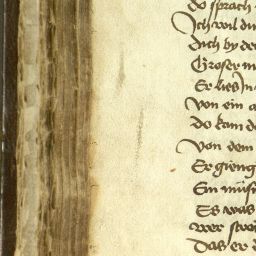 do sprach
Ich wil di
Dich by de
Groser m
Er lies In
von ein a
do kam d
von dem
Er gieng
Ein müs
Es was
wer stro
Das er d